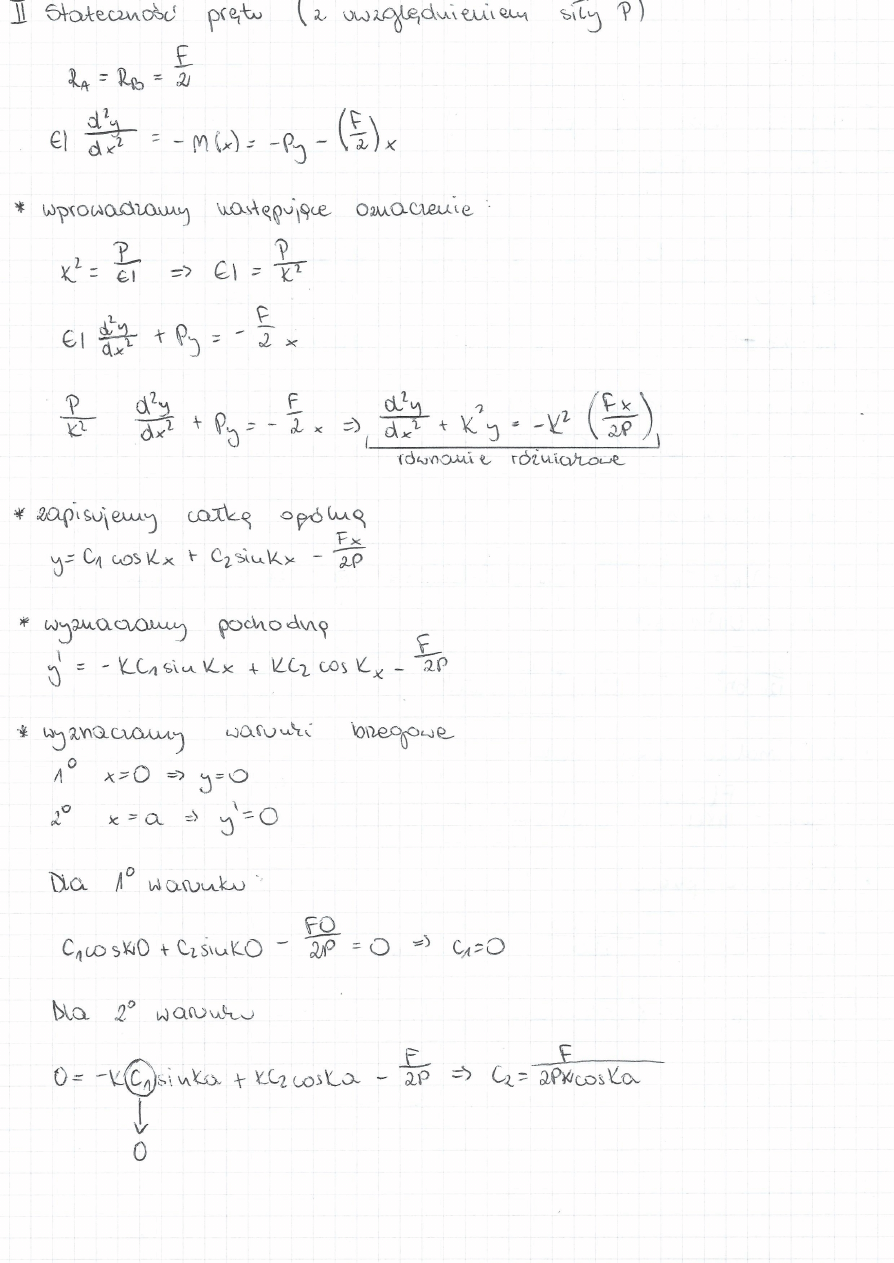 II Stateczność pręta (z uwzględnieniem siły P)
R_A = R_B = F/2
EI d²y/dx² = -M(x) = -Py - (F/2)x
* wprowadzamy następujące oznaczenie:
K² = P/EI => EI = P/K²
EI d²y/dx² + Py = - F/2 x
P/K² d²y/dx² + Py = - F/2 x => d²y/dx² + K²y = -K² (Fx/2P)
równanie różniczkowe
* zapisujemy całkę ogólną
y = C₁ cosKx + C₂ sinKx - Fx/2P
* wyznaczamy pochodną
y' = -KC₁ sinKx + KC₂ cosKx - F/2P
* wyznaczamy warunki brzegowe
1° x=0 => y=0
2° x=a => y'=0
Dla 1° warunku:
C₁cosK0 + C₂sinK0 - F0/2P = 0 => C₁=0
Dla 2° warunku
0 = -KC₁sinKa + KC₂cosKa - F/2P => C₂ = F/2PKcosKa
0